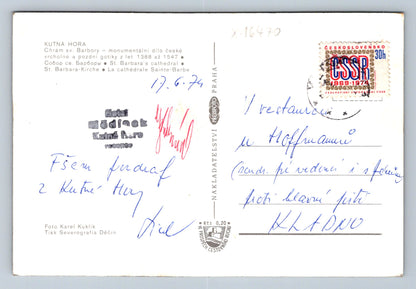 X-16470
KUTNÁ HORA
Chrám sv. Barbory – monumentální dílo české
vrcholné a pozdní gotky z let 1388 až 1547 •
Собор св. Барборы • St. Barbara's cathedral •
St. Barbara-Kirche • La cathédrale Sainte-Barbe
17. 6. 74
Hotel
Mědínek
Kutná Hora
Všem pozdrav
z Kutné Hory
Foto Karel Kuklík
Tisk Severografia Děčín
NAKLADATELSTVÍ
PRAHA
Kčs 0,20
ČESKOSLOVENSKO
30h
ČSSR
1969-1974
V restauraci
u Hoffmannů
proti hlavní poště
KLADNO